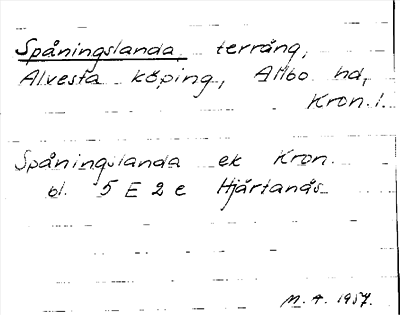 Spåningslanda, terräng,
Alvesta köping, Allbo hd,
Kron. l.
Spåningslanda ek Kron.
bl. 5 E 2 e Hjärtanäs
M. A. 1957.